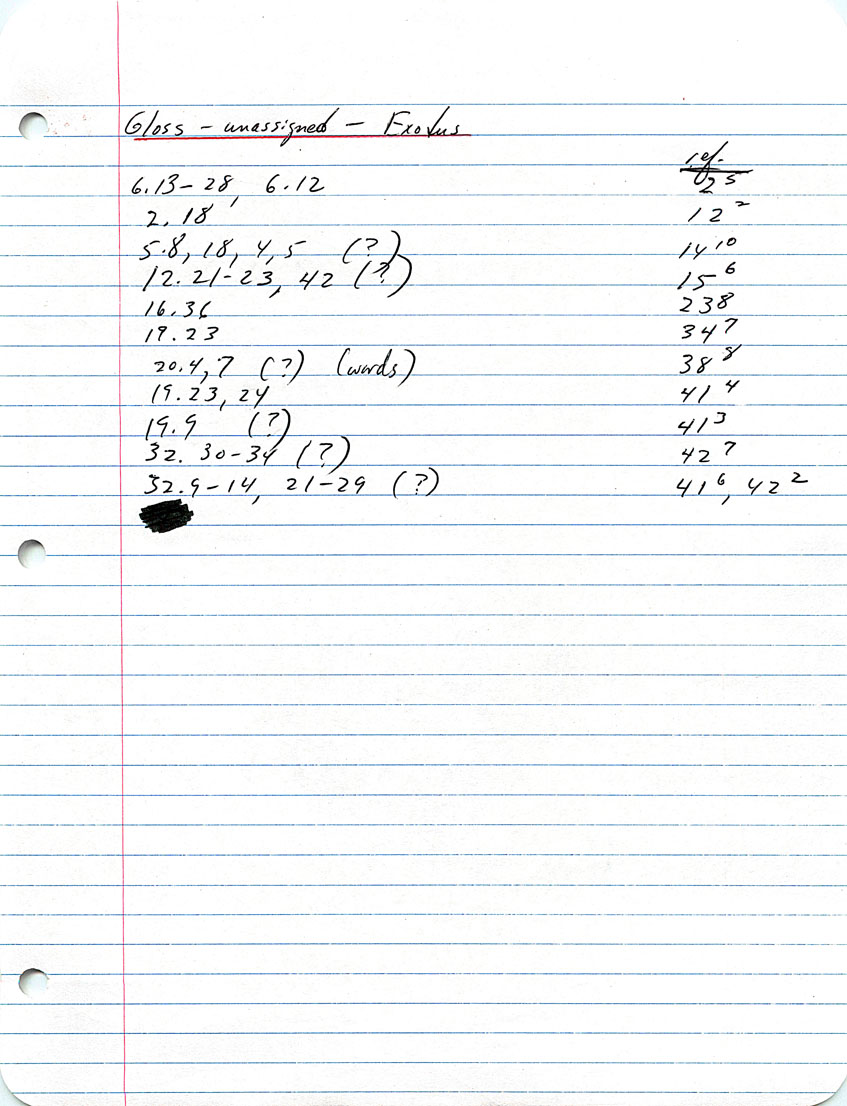 Gloss – unassigned – Exodus
ref.
6.13–28, 6.12 2⁵
2.18 12²
5.8, 18, 4, 5 (?) 14¹⁰
12.21–23, 42 (?) 15⁶
16.36 23⁸
19.23 34⁷
20.4, 7 (?) (words) 38⁸
19.23, 24 41⁴
19.9 (?) 41³
32. 30–34 (?) 42⁷
32.9–14, 21–29 (?) 41⁶, 42²